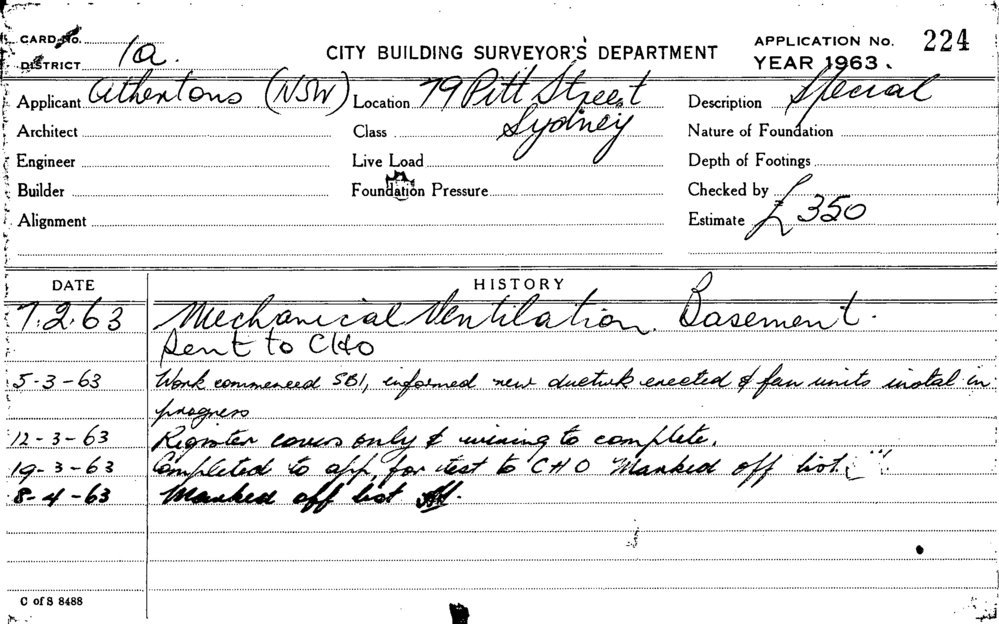 CARD No.
DISTRICT 1a.
CITY BUILDING SURVEYOR'S DEPARTMENT
APPLICATION No. 224
YEAR 1963.
Applicant Athertons (NSW) Location 79 Pitt Street Description Special
Architect Class Sydney Nature of Foundation
Engineer Live Load Depth of Footings
Builder Foundation Pressure Checked by
Alignment Estimate £350
DATE HISTORY
7.2.63 Mechanical Ventilation. Basement.
Sent to CHO
5-3-63 Work commenced SBI, informed new ductwk erected & fan units instal in
progress
12-3-63 Register covers only & wiring to complete.
19-3-63 Completed to app. for test to CHO Marked off list.
8-4-63 Marked off list
C of S 8488